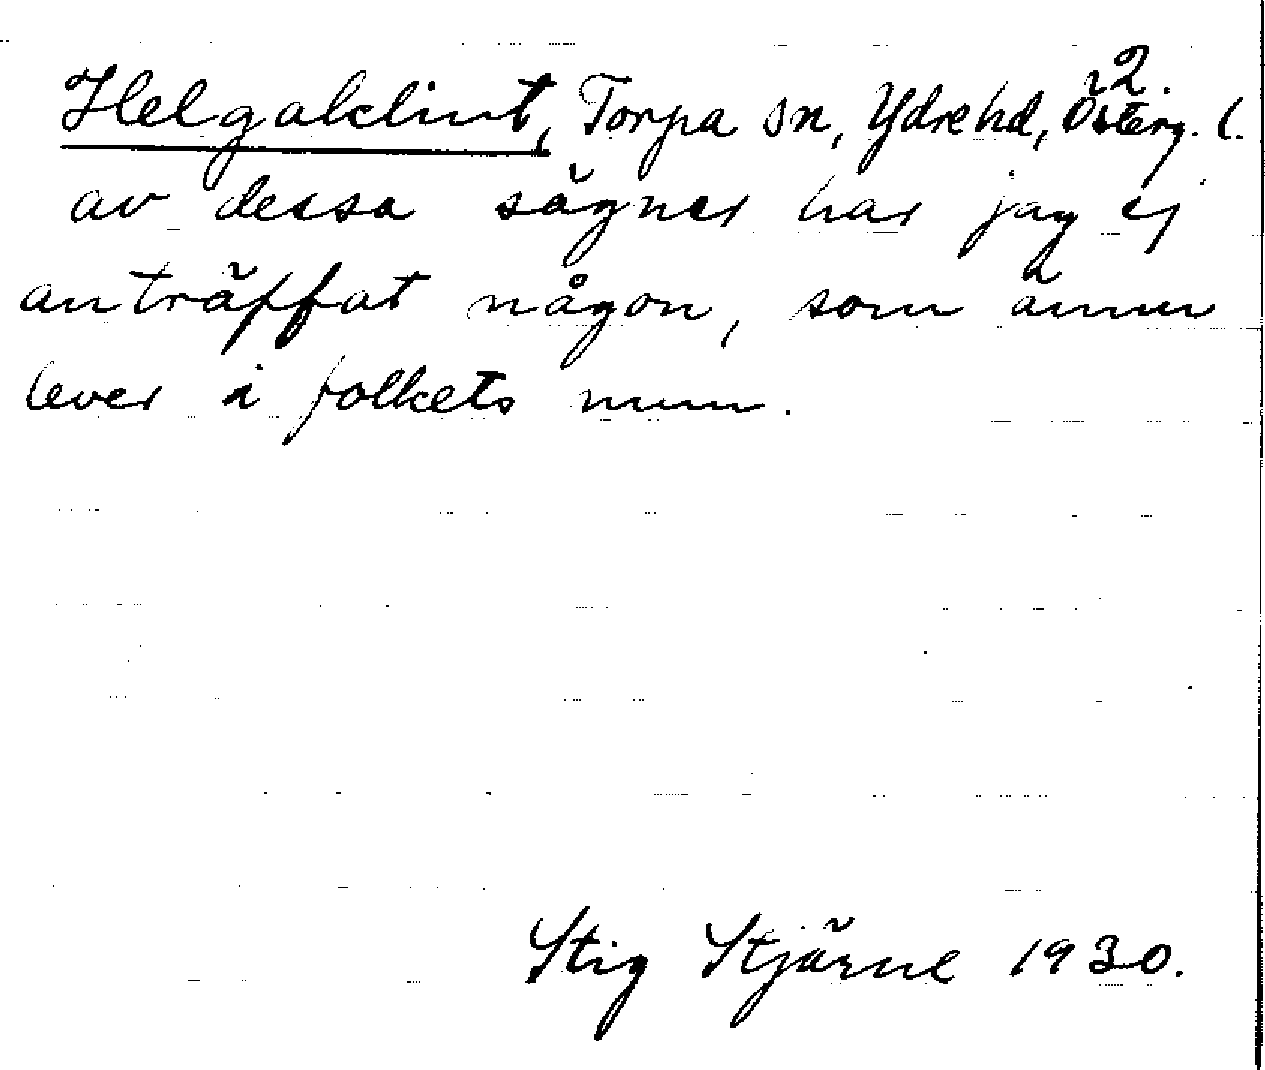 2.
Helgaklint, Torpa sn, Ydre hd, Österg. l.
av dessa sägner har jag ej
anträffat någon, som ännu
lever i folkets mun.
Stig Stjärne 1930.